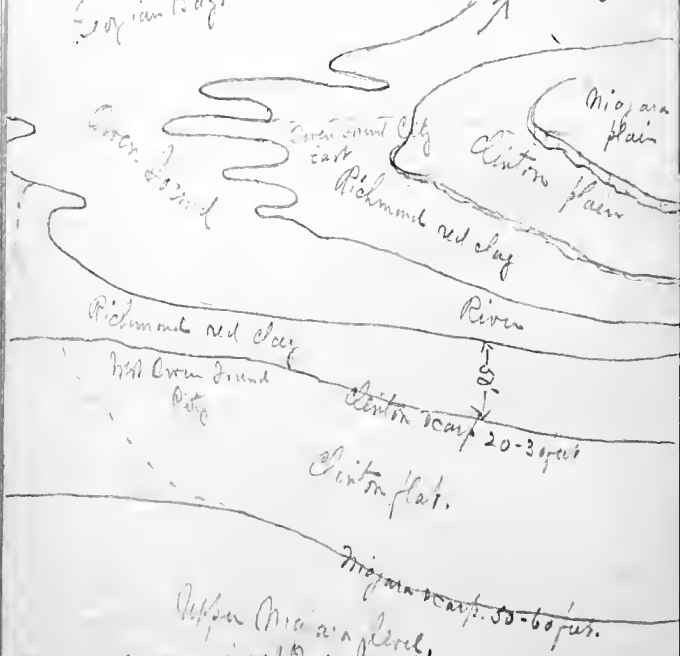 Georgian Bay.
Niagara
plain
Owen Sound
Owen Sound City
East
Clinton plain
Richmond red clay
River
Richmond red clay
West Owen Sound
City
Clinton scarp 20-30 feet
Clinton flat.
Niagara scarp. 50-60 feet.
Upper Niagara level.